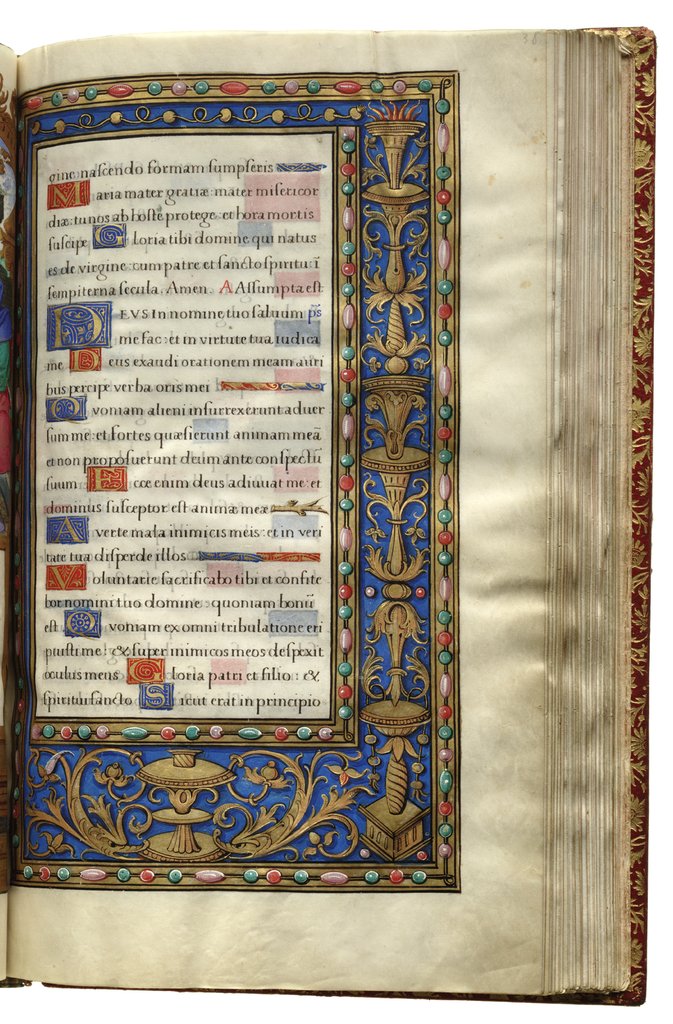 gine nascendo formam sumpseris
Maria mater gratiæ: mater misericor
diæ: tu nos ab hoste protege et hora mortis
suscipe Gloria tibi domine qui natus
es de virgine: cum patre et sancto spiritu: ī
sempiterna secula. Amen. A Assumpta est
DEVS in nomine tuo saluum ps
me fac: et in virtute tua iudica
me Deus exaudi orationem meam auri
bus percipe verba oris mei
Quoniam alieni insurrexerunt aduer
sum me: et fortes quæsierunt animam meā
et non proposuerunt deum ante conspectū
suum Ecce enim deus adiuuat me: et
dominus susceptor est animæ meæ
Auerte mala inimicis meis: et in veri
tate tua disperde illos
Voluntarie sacrificabo tibi et confite
bor nomini tuo domine: quoniam bonū
est Quoniam ex omni tribulatione eri
puisti me: & super inimicos meos despexit
oculus meus Gloria patri et filio: &
spiritui sancto Sicut erat in principio